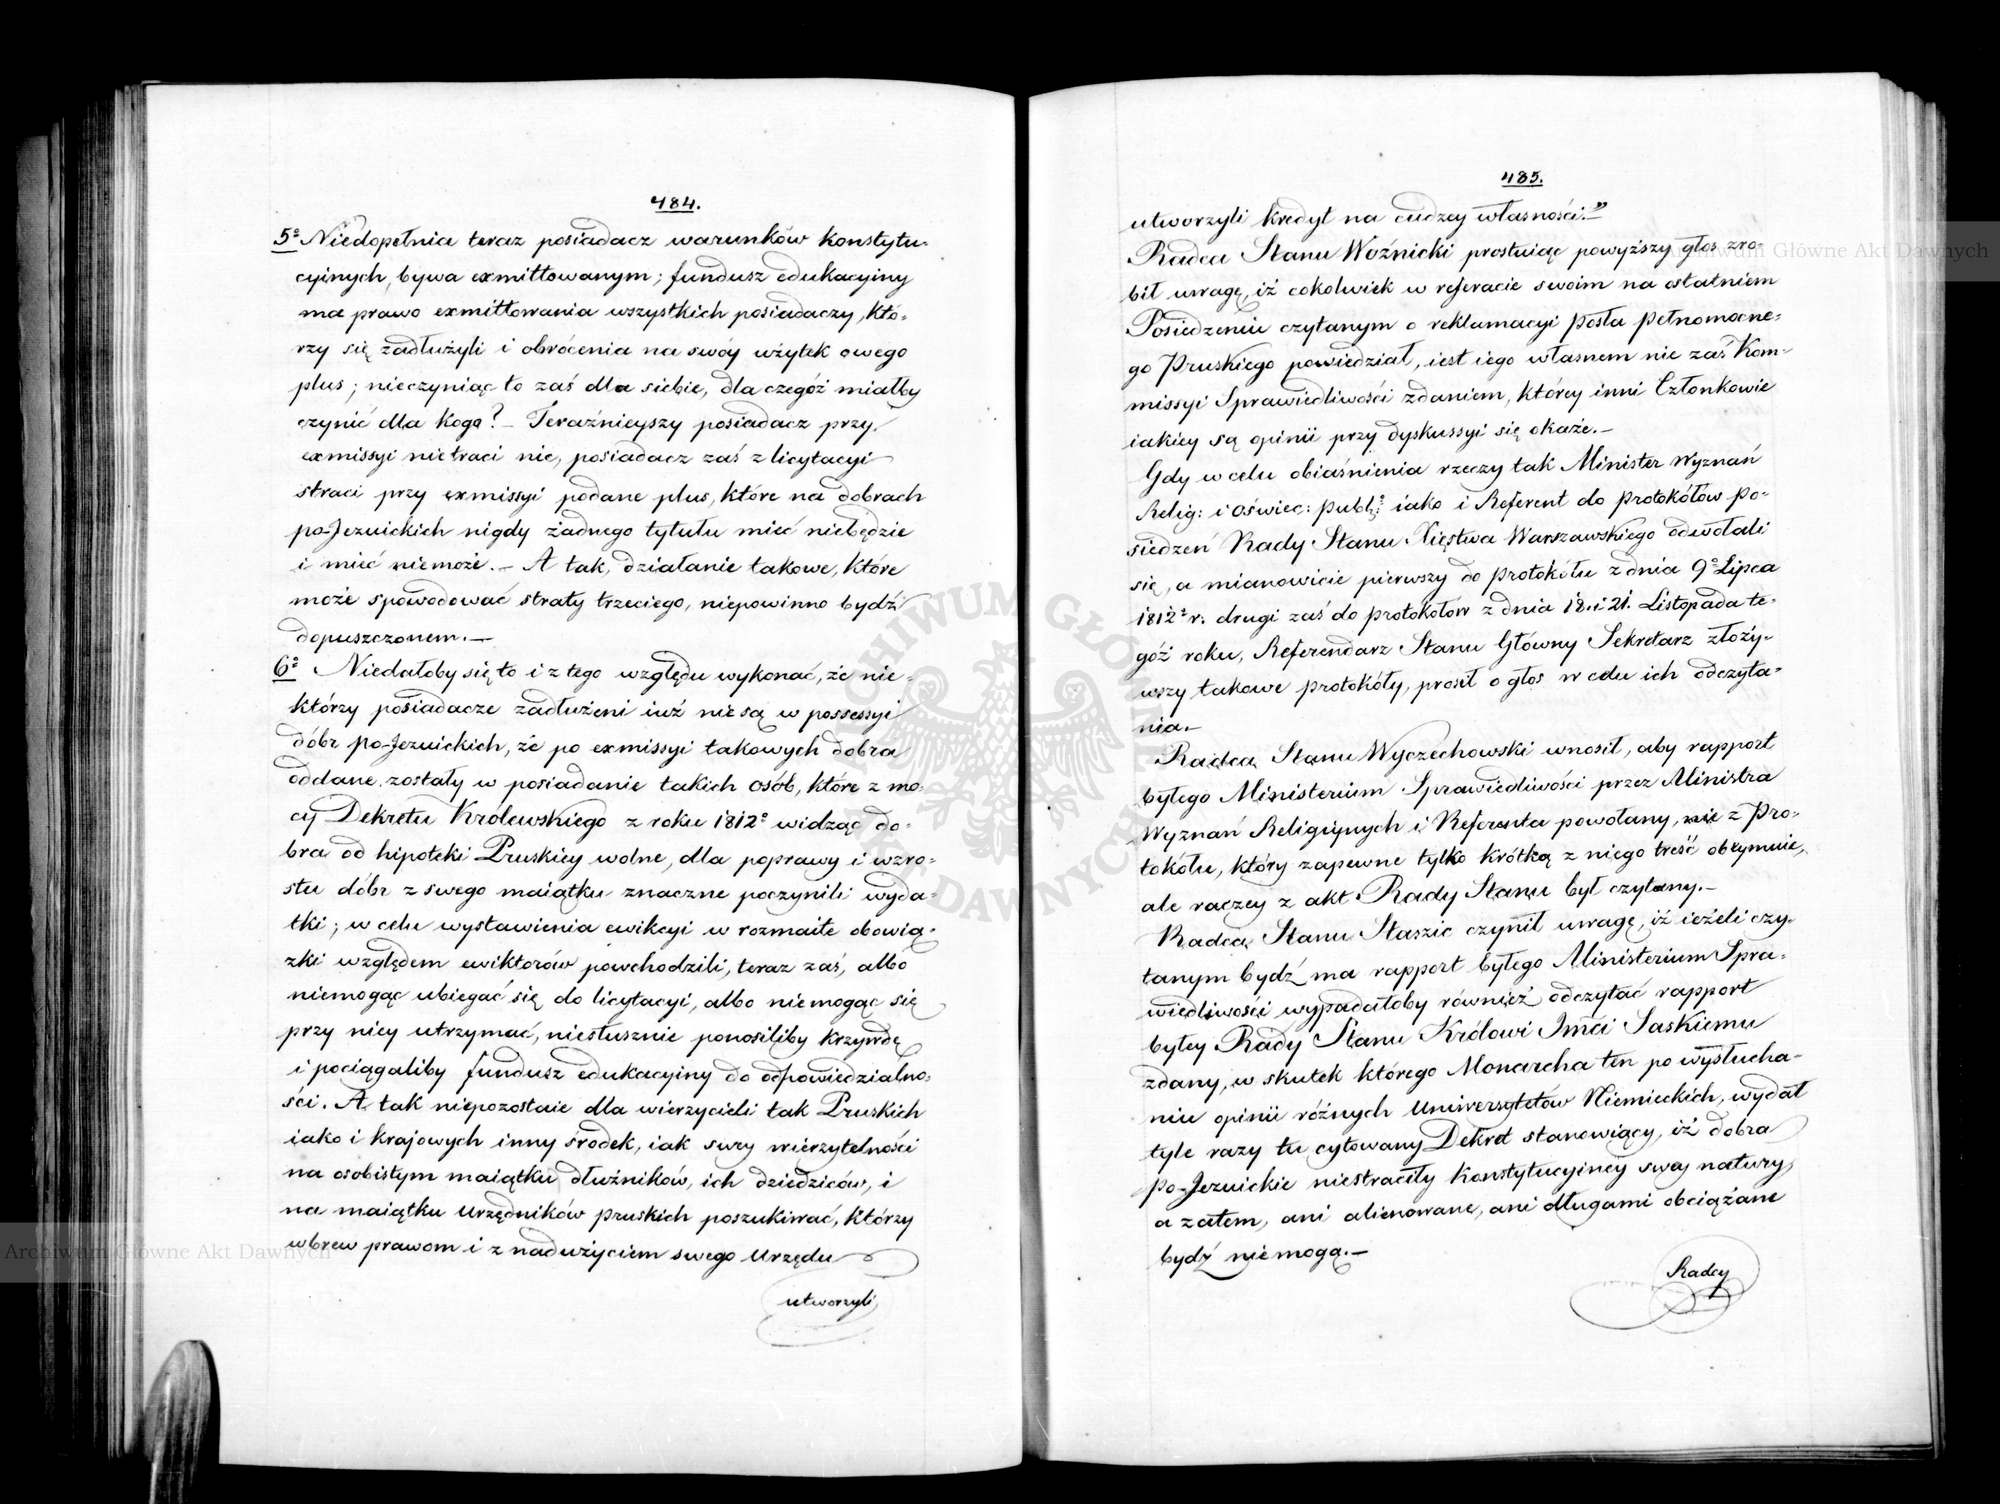 484.
5º Niedopełnia teraz posiadacz warunków konstytu-
cyinych, bywa exmittowanym; fundusz edukacyiny
ma prawo exmittowania wszystkich posiadaczy, któ-
rzy się zadłużyli i obrócenia na swóy użytek owego
plus; nieczyniąc to zaś dla siebie, dla czegóż miałby
czynić dla kogo? – Teraźnieyszy posiadacz przy
exmissyi nietraci nic, posiadacz zaś z licytacyi
straci przy exmissyi podane plus, które na dobrach
po-Jezuickich nigdy żadnego tytułu mieć niebędzie
i mieć niemoże. – A tak, działanie takowe, które
może spowodować straty trzeciego, niepowinno bydź
dopuszczonem. –
6º Niedałoby się to i z tego względu wykonać, że nie-
którzy posiadacze zadłużeni iuż nie są w possessyi
dóbr po-Jezuickich, że po exmissyi takowych dobra
oddane zostały w posiadanie takich osób, które z mo-
cy Dekretu Królewskiego z roku 1812º widząc do-
bra od hipoteki Pruskiey wolne, dla poprawy i wzro-
stu dóbr z swego maiątku znaczne poczynili wyda-
tki; w celu wystawienia ewikcyi w rozmaite obowią-
zki względem ewiktorów powchodzili, teraz zaś, albo
niemogąc ubiegać się do licytacyi, albo niemogąc się
przy niey utrzymać, niesłusznie ponosiliby krzywdę
i pociągaliby fundusz edukacyiny do odpowiedzialno-
ści. A tak niepozostaie dla wierzycieli tak Pruskich
iako i krajowych inny środek, iak swey wierzytelności
na osobistym maiątku dłużników, ich dziedziców, i
na maiątku urzędników pruskich poszukiwać, którzy
wbrew prawom i z nadużyciem swego Urzędu
utworzyli
485.
utworzyli kredyt na cudzey własności."
Radca Stanu Woźnicki prostuiąc powyższy głos zro-
bił uwagę, iż cokolwiek w referacie swoim na ostatniem
Posiedzeniu czytanym o reklamacyi Posła pełnomocne-
go Pruskiego powiedział, iest iego własnem nie zaś Kom-
missyi Sprawiedliwości zdaniem, którey inni Członkowie
iakiey są opinii przy dyskussyi się okaże. –
Gdy w celu obiaśnienia rzeczy tak Minister Wyznań
Relig: i Oświec: publ: iako i Referent do protokółów po-
siedzeń Rady Stanu Xięstwa Warszawskiego odwołali
się, a mianowicie pierwszy do protokółu z dnia 9º Lipca
1812º r. drugi zaś do protokółów z dnia 18. i 21. Listopada te-
góż roku, Referendarz Stanu Główny Sekretarz złoży-
wszy takowe protokóły, prosił o głos w celu ich odczyta-
nia. –
Radca Stanu Wyczechowski wnosił, aby rapport
byłego Ministerium Sprawiedliwości przez Ministra
Wyznań Religiynych i Referenta powołany, nie z Pro-
tokółu, który zapewne tylko krótką z niego treść obeymuie,
ale raczey z akt Rady Stanu był czytany. –
Radca Stanu Staszic czynił uwagę, iż ieżeli czy-
tanym bydź ma rapport byłego Ministerium Spra-
wiedliwości wypadałoby również odczytać rapport
byłey Rady Stanu Królowi Jmci Saskiemu
zdany, w skutek którego Monarcha ten po wysłucha-
niu opinii różnych Uniwersytetów Niemieckich, wydał
tyle razy tu cytowany Dekret stanowiący, iż dobra
po-Jezuickie niestraciły konstytucyiney swey natury,
a zatem, ani alienowane, ani długami obciążane
bydź niemogą. –
Radcy
Archiwum Główne Akt Dawnych
Archiwum Główne Akt Dawnych
ARCHIWUM GŁÓWNE AKT DAWNYCH